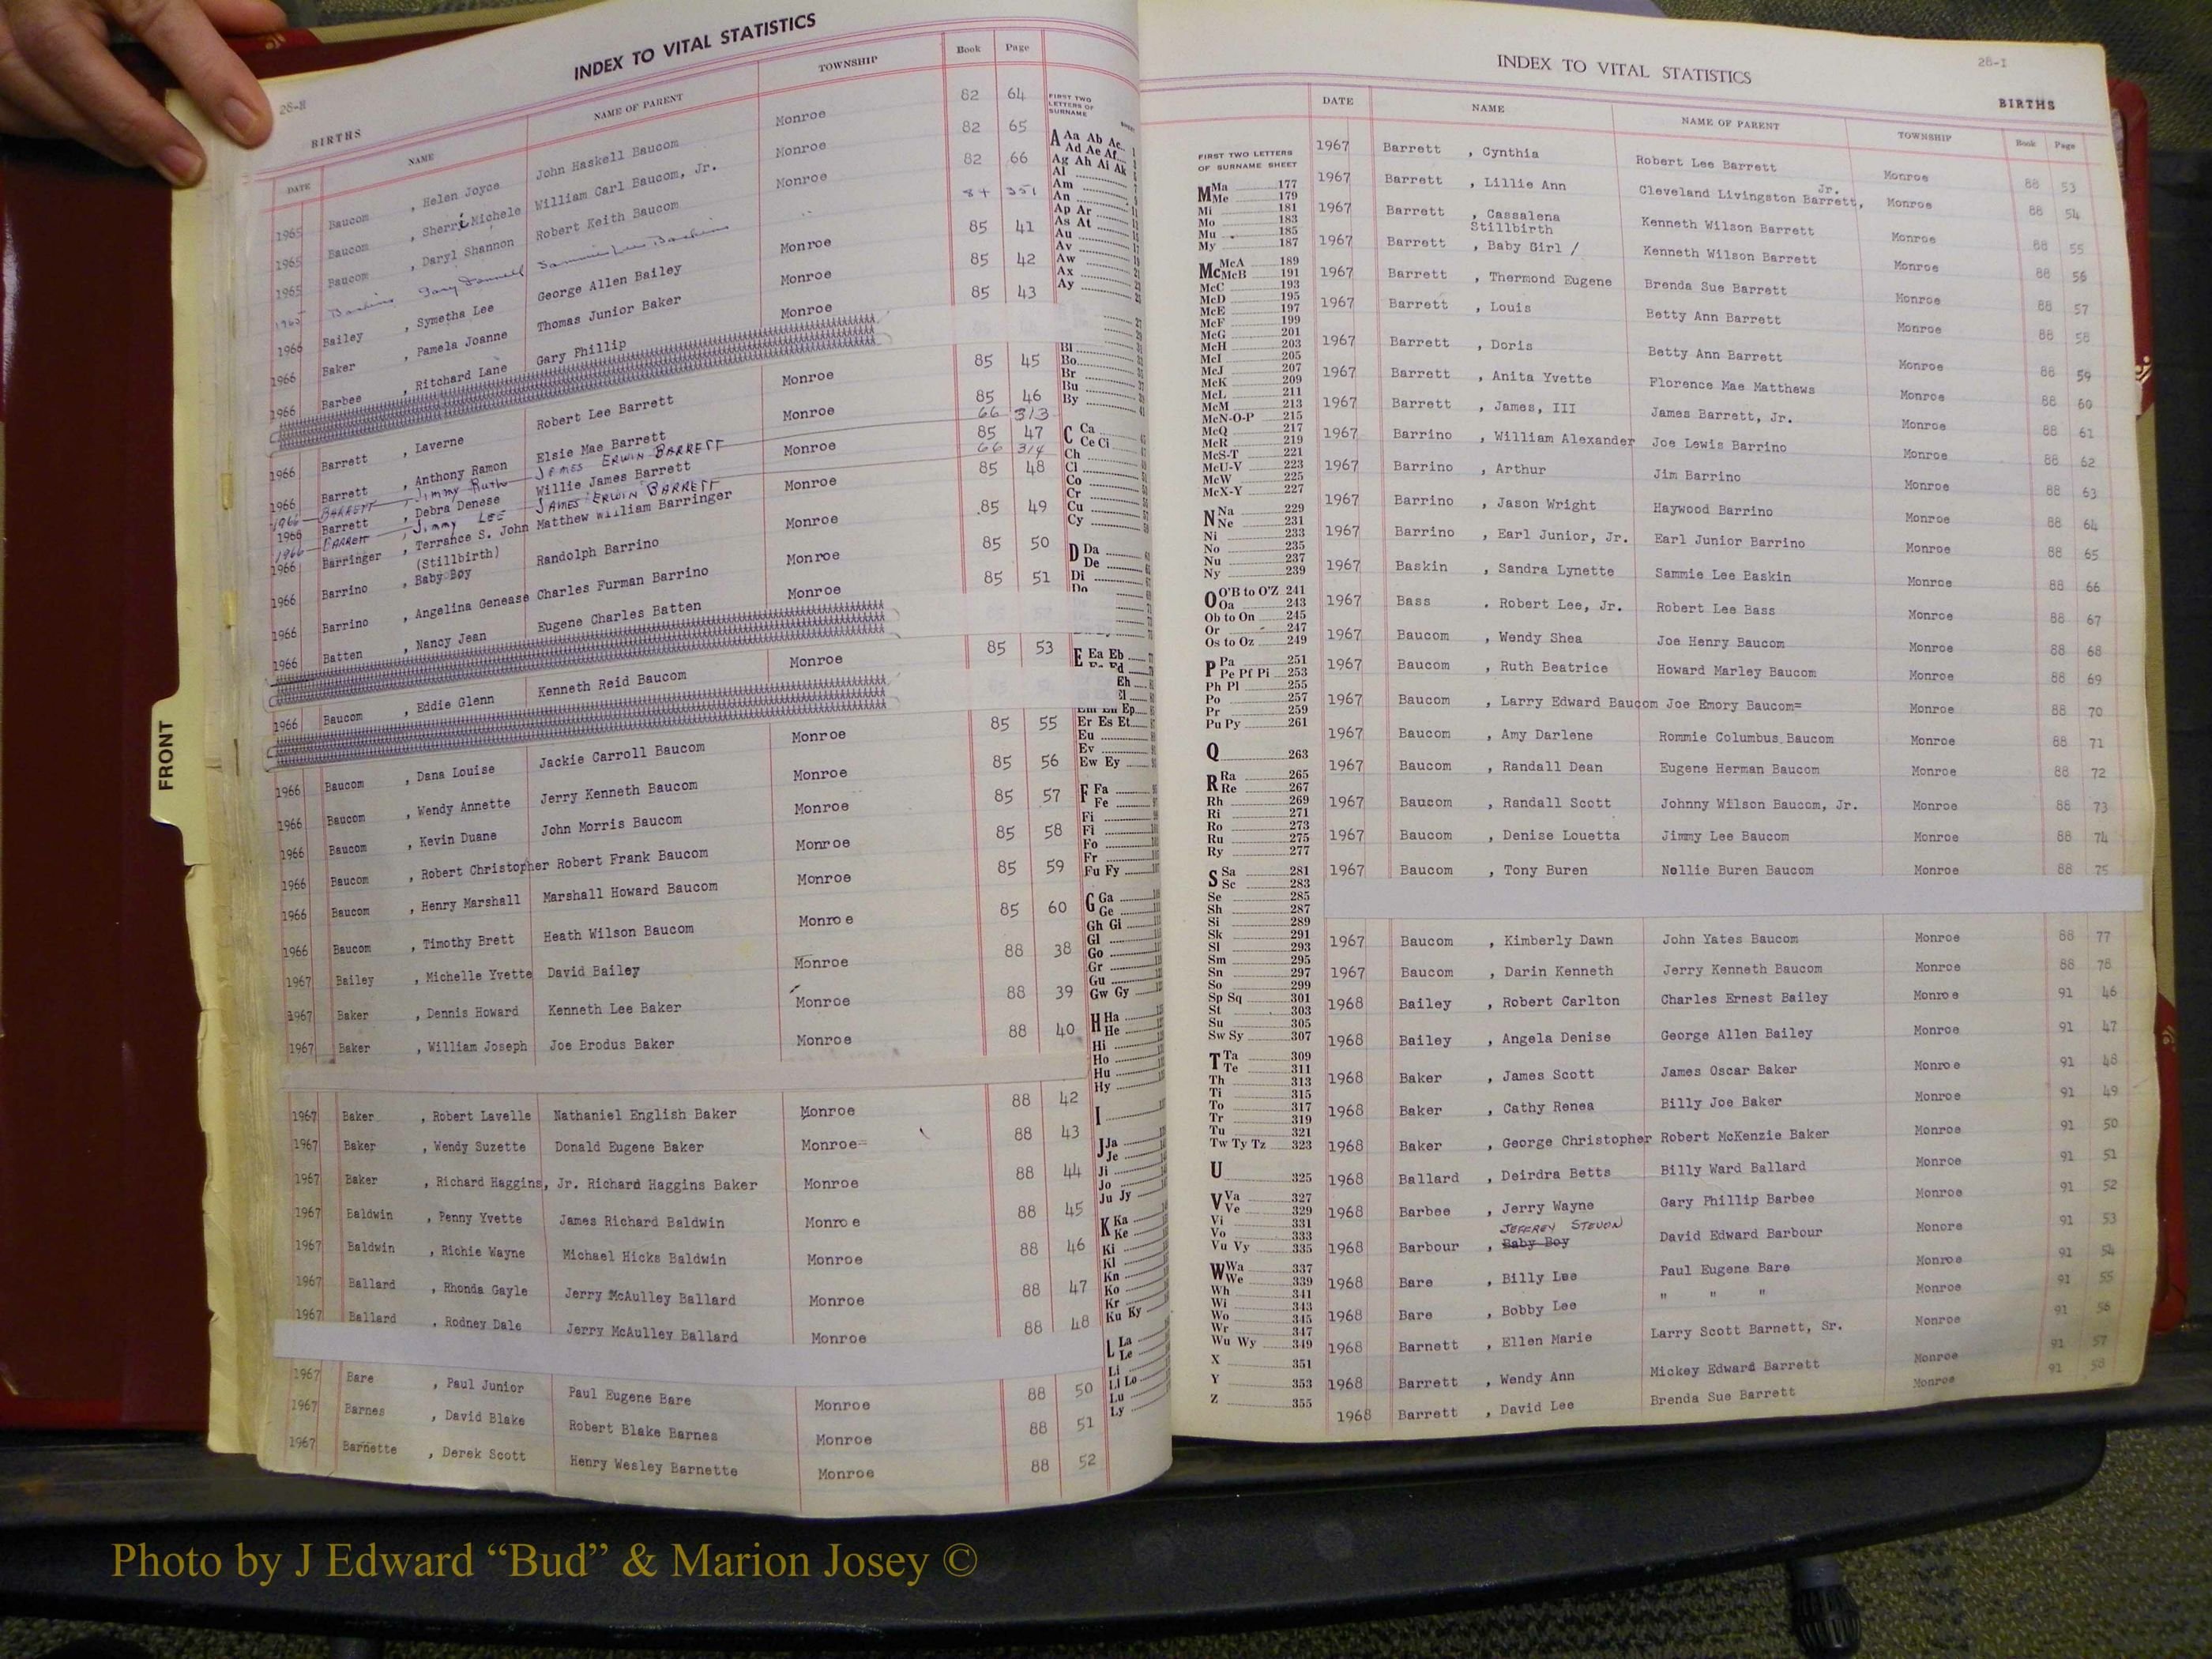 28-H
INDEX TO VITAL STATISTICS
BIRTHS
DATE NAME NAME OF PARENT TOWNSHIP Book Page
1965 Baucom , Helen Joyce John Haskell Baucom Monroe 82 64
1965 Baucom , Sherri Michele William Carl Baucom, Jr. Monroe 82 65
1965 Baucom , Daryl Shannon Robert Keith Baucom Monroe 82 66
1965 Baskins Sammie Lee Baskins 84 351
1966 Bailey , Symetha Lee George Allen Bailey Monroe 85 41
1966 Baker , Pamela Joanne Thomas Junior Baker Monroe 85 42
1966 Barbee , Ritchard Lane Gary Phillip Monroe 85 43
1966 Barrett , Laverne Robert Lee Barrett Monroe 85 45
1966 Barrett , Anthony Ramon Elsie Mae Barrett Monroe 85 46
1966 BARRETT , Jimmy Ruth JAMES ERWIN BARRETT 66 313
1966 Barrett , Debra Denese Willie James Barrett Monroe 85 47
1966 BARRETT , Jimmy LEE JAMES ERWIN BARRETT 66 314
1966 Barringer , Terrance S. John Matthew William Barringer Monroe 85 48
(Stillbirth)
1966 Barrino , Baby Boy Randolph Barrino Monroe 85 49
1966 Barrino , Angelina Genease Charles Furman Barrino Monroe 85 50
1966 Batten , Nancy Jean Eugene Charles Batten Monroe 85 51
1966 Baucom , Eddie Glenn Kenneth Reid Baucom Monroe 85 53
1966 Baucom , Dana Louise Jackie Carroll Baucom Monroe 85 55
1966 Baucom , Wendy Annette Jerry Kenneth Baucom Monroe 85 56
1966 Baucom , Kevin Duane John Morris Baucom Monroe 85 57
1966 Baucom , Robert Christopher Robert Frank Baucom Monroe 85 58
1966 Baucom , Henry Marshall Marshall Howard Baucom Monroe 85 59
1966 Baucom , Timothy Brett Heath Wilson Baucom Monroe 85 60
1967 Bailey , Michelle Yvette David Bailey Monroe 88 38
1967 Baker , Dennis Howard Kenneth Lee Baker Monroe 88 39
1967 Baker , William Joseph Joe Brodus Baker Monroe 88 40
1967 Baker , Robert Lavelle Nathaniel English Baker Monroe 88 42
1967 Baker , Wendy Suzette Donald Eugene Baker Monroe 88 43
1967 Baker , Richard Haggins, Jr. Richard Haggins Baker Monroe 88 44
1967 Baldwin , Penny Yvette James Richard Baldwin Monroe 88 45
1967 Baldwin , Richie Wayne Michael Hicks Baldwin Monroe 88 46
1967 Ballard , Rhonda Gayle Jerry McAulley Ballard Monroe 88 47
1967 Ballard , Rodney Dale Jerry McAulley Ballard Monroe 88 48
1967 Bare , Paul Junior Paul Eugene Bare Monroe 88 50
1967 Barnes , David Blake Robert Blake Barnes Monroe 88 51
1967 Barnette , Derek Scott Henry Wesley Barnette Monroe 88 52
FRONT
FIRST TWO
LETTERS OF
SURNAME
A Aa Ab Ac
Ad Ae Af
Ag Ah Ai Ak
Al
Am
An
Ap Ar
As At
Au
Av
Aw
Ax
Ay
Bl
Bo
Br
Bu
By
C Ca
Ce Ci
Ch
Cl
Co
Cr
Cu
Cy
D Da
De
Di
Do
E Ea Eb
Eh
El
Er Es Et
Eu
Ev
Ew Ey
F Fa
Fe
Fi
Fl
Fo
Fr
Fu Fy
G Ga
Ge
Gh Gi
Gl
Go
Gr
Gu
Gw Gy
H Ha
He
Hi
Ho
Hu
Hy
I
J Ja
Je
Ji
Jo
Ju Jy
K Ka
Ke
Ki
Kl
Kn
Ko
Kr
Ku Ky
L La
Le
Li
Ll Lo
Lu
Ly
INDEX TO VITAL STATISTICS
28-I
BIRTHS
FIRST TWO LETTERS
OF SURNAME SHEET
M Ma 177
Me 179
Mi 181
Mo 183
Mu 185
My 187
Mc McA 189
McB 191
McC 193
McD 195
McE 197
McF 199
McG 201
McH 203
McI 205
McJ 207
McK 209
McL 211
McM 213
McN-O-P 215
McQ 217
McR 219
McS-T 221
McU-V 223
McW 225
McX-Y 227
N Na 229
Ne 231
Ni 233
No 235
Nu 237
Ny 239
O O'B to O'Z 241
Oa 243
Ob to On 245
Or 247
Os to Oz 249
P Pa 251
Pe Pf Pi 253
Ph Pl 255
Po 257
Pr 259
Pu Py 261
Q 263
R Ra 265
Re 267
Rh 269
Ri 271
Ro 273
Ru 275
Ry 277
S Sa 281
Sc 283
Se 285
Sh 287
Si 289
Sk 291
Sl 293
Sm 295
Sn 297
So 299
Sp Sq 301
St 303
Su 305
Sw Sy 307
T Ta 309
Te 311
Th 313
Ti 315
To 317
Tr 319
Tu 321
Tw Ty Tz 323
U 325
V Va 327
Ve 329
Vi 331
Vo 333
Vu Vy 335
W Wa 337
We 339
Wh 341
Wi 343
Wo 345
Wr 347
Wu Wy 349
X 351
Y 353
Z 355
DATE NAME NAME OF PARENT TOWNSHIP Book Page
1967 Barrett , Cynthia Robert Lee Barrett Monroe 88 53
1967 Barrett , Lillie Ann Cleveland Livingston Barrett, Jr. Monroe 88 54
1967 Barrett , Cassalena Kenneth Wilson Barrett Monroe 88 55
Stillbirth
1967 Barrett , Baby Girl / Kenneth Wilson Barrett Monroe 88 56
1967 Barrett , Thermond Eugene Brenda Sue Barrett Monroe 88 57
1967 Barrett , Louis Betty Ann Barrett Monroe 88 58
1967 Barrett , Doris Betty Ann Barrett Monroe 88 59
1967 Barrett , Anita Yvette Florence Mae Matthews Monroe 88 60
1967 Barrett , James, III James Barrett, Jr. Monroe 88 61
1967 Barrino , William Alexander Joe Lewis Barrino Monroe 88 62
1967 Barrino , Arthur Jim Barrino Monroe 88 63
1967 Barrino , Jason Wright Haywood Barrino Monroe 88 64
1967 Barrino , Earl Junior, Jr. Earl Junior Barrino Monroe 88 65
1967 Baskin , Sandra Lynette Sammie Lee Baskin Monroe 88 66
1967 Bass . Robert Lee, Jr. Robert Lee Bass Monroe 88 67
1967 Baucom , Wendy Shea Joe Henry Baucom Monroe 88 68
1967 Baucom , Ruth Beatrice Howard Marley Baucom Monroe 88 69
1967 Baucom , Larry Edward Baucom Joe Emory Baucom= Monroe 88 70
1967 Baucom , Amy Darlene Rommie Columbus Baucom Monroe 88 71
1967 Baucom , Randall Dean Eugene Herman Baucom Monroe 88 72
1967 Baucom , Randall Scott Johnny Wilson Baucom, Jr. Monroe 88 73
1967 Baucom , Denise Louetta Jimmy Lee Baucom Monroe 88 74
1967 Baucom , Tony Buren Nollie Buren Baucom Monroe 88 75
1967 Baucom , Kimberly Dawn John Yates Baucom Monroe 88 77
1967 Baucom , Darin Kenneth Jerry Kenneth Baucom Monroe 88 78
1968 Bailey , Robert Carlton Charles Ernest Bailey Monroe 91 46
1968 Bailey , Angela Denise George Allen Bailey Monroe 91 47
1968 Baker , James Scott James Oscar Baker Monroe 91 48
1968 Baker , Cathy Renea Billy Joe Baker Monroe 91 49
1968 Baker , George Christopher Robert McKenzie Baker Monroe 91 50
1968 Ballard , Deirdra Betts Billy Ward Ballard Monroe 91 51
1968 Barbee , Jerry Wayne Gary Phillip Barbee Monroe 91 52
JEFFREY STEVON
1968 Barbour , Baby Boy David Edward Barbour Monore 91 53
1968 Bare , Billy Lee Paul Eugene Bare Monroe 91 54
1968 Bare , Bobby Lee " " " Monroe 91 55
1968 Barnett , Ellen Marie Larry Scott Barnett, Sr. Monroe 91 56
1968 Barrett , Wendy Ann Mickey Edward Barrett Monroe 91 57
1968 Barrett , David Lee Brenda Sue Barrett Monroe 91 58
Photo by J Edward “Bud” & Marion Josey ©